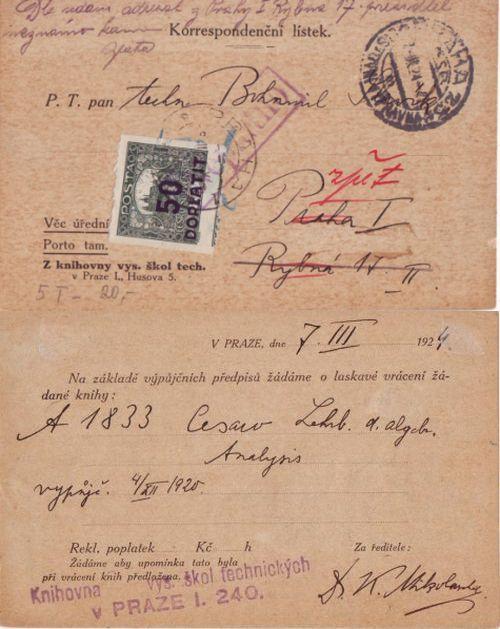 Dle udání adresát z Prahy I Rybná 17. přesídlel
neznámo kam
Korrespondenční lístek.
P. T. pan techn. Bohumil
zpět
Praha I
Rybná 17. II.
POSTA
50
DOPLATIT
Věc úřední
Porto tam.
Z knihovny vys. škol tech.
v Praze I., Husova 5.
5 T - 20,-
V PRAZE, dne 7. III 1924.
Na základě výpůjčních předpisů žádáme o laskavé vrácení žá-
dané knihy:
A 1833 Cesaro Lehrb. d. algebr.
Analysis
vypůjč. 4/XII 1920.
Rekl. poplatek Kč h
Za ředitele:
Žádáme aby upomínka tato byla
při vrácení knih předložena.
Knihovna vys. škol technických
v PRAZE I. 240.
Dr. K.